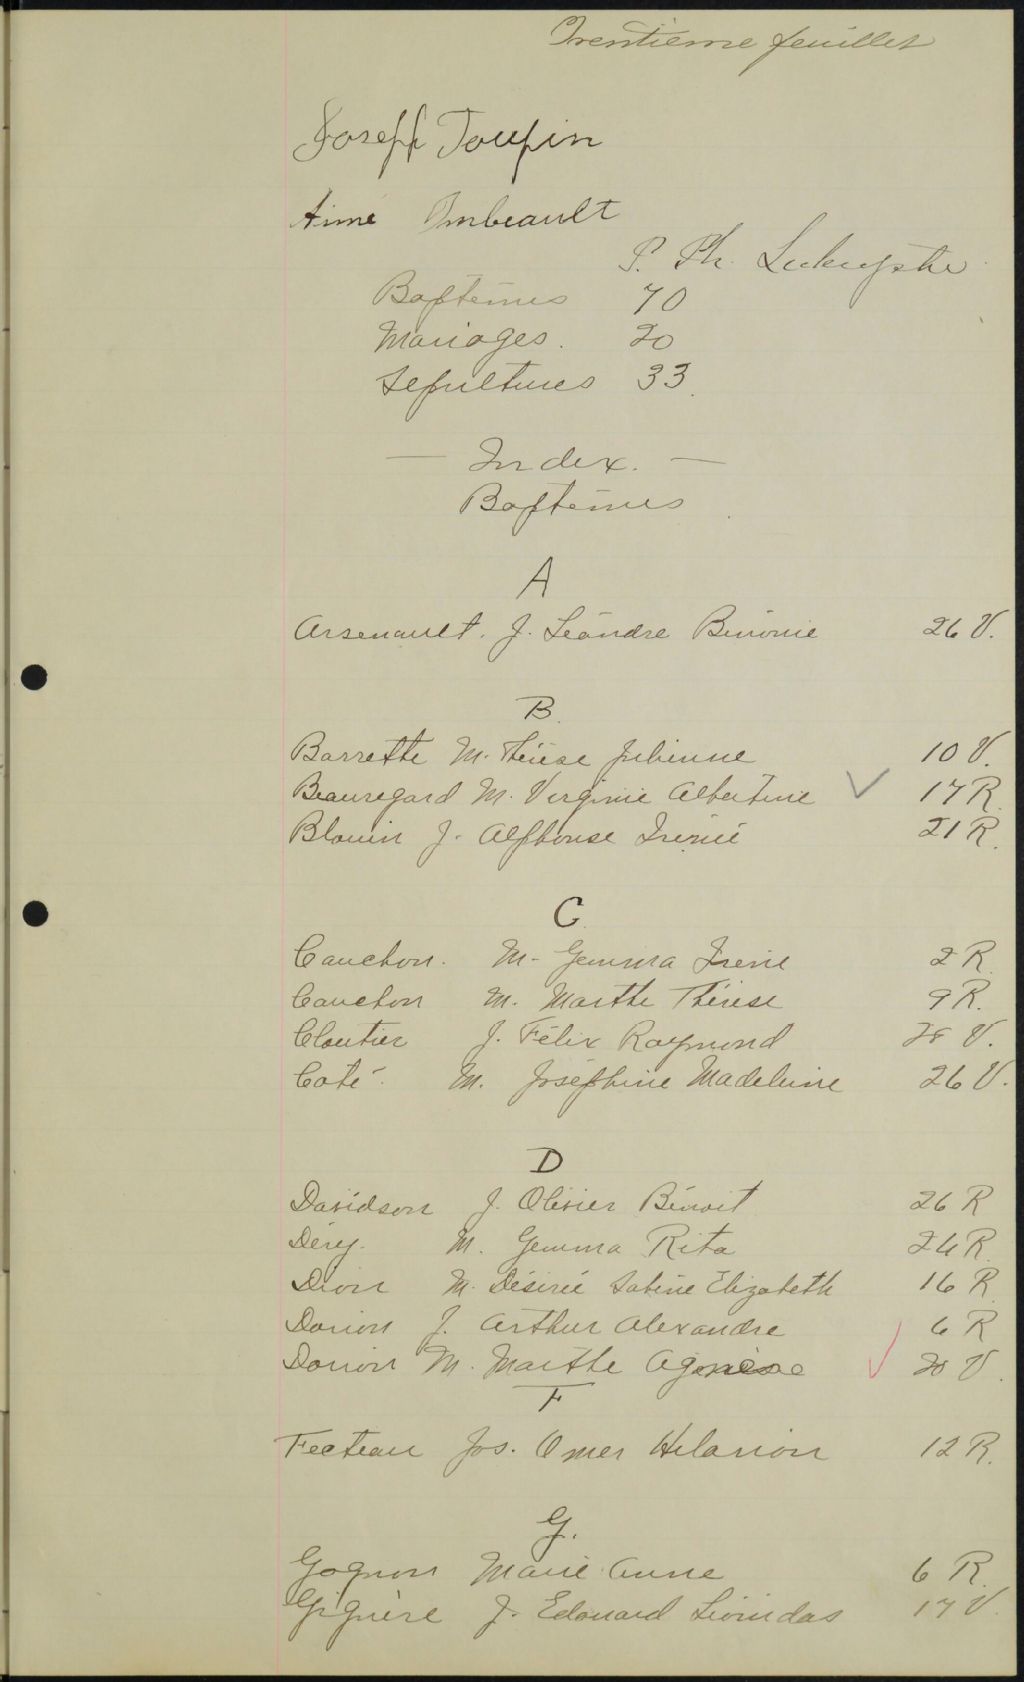 Trentième feuillet
Joseph Toupin
Aimé Imbeault
P. Ph.
Baptêmes 70
Mariages. 20
Sépultures 33.
— Index. —
Baptêmes
A
Arsenault. J. Léandre Bénonie 26 V.
B
Barrette M. Thérèse Julienne 10 V.
Beauregard M. Virginie Albertine ✓ 17 R.
Blouin J. Alphonse Irénée 21 R.
C
Cauchon. M. Gemma Irène 2 R.
Cauchon M. Marthe Thérèse 9 R.
Cloutier J. Félix Raymond 28 V.
Coté. M. Joséphine Madeleine 26 V.
D
Davidson J. Olivier Bénoit 26 R
Déry. M. Gemma Rita 24 R.
Dion M. Désirée Sabine Elizabeth 16 R.
Dorion J. Arthur Alexandre 6 R
Dorion M. Marthe Agnèse ✓ 20 V.
F
Fecteau Jos. Omer Hilarion 12 R.
G.
Gagnon Marie Anne 6 R.
Giguère J. Edouard Léonidas 17 V.